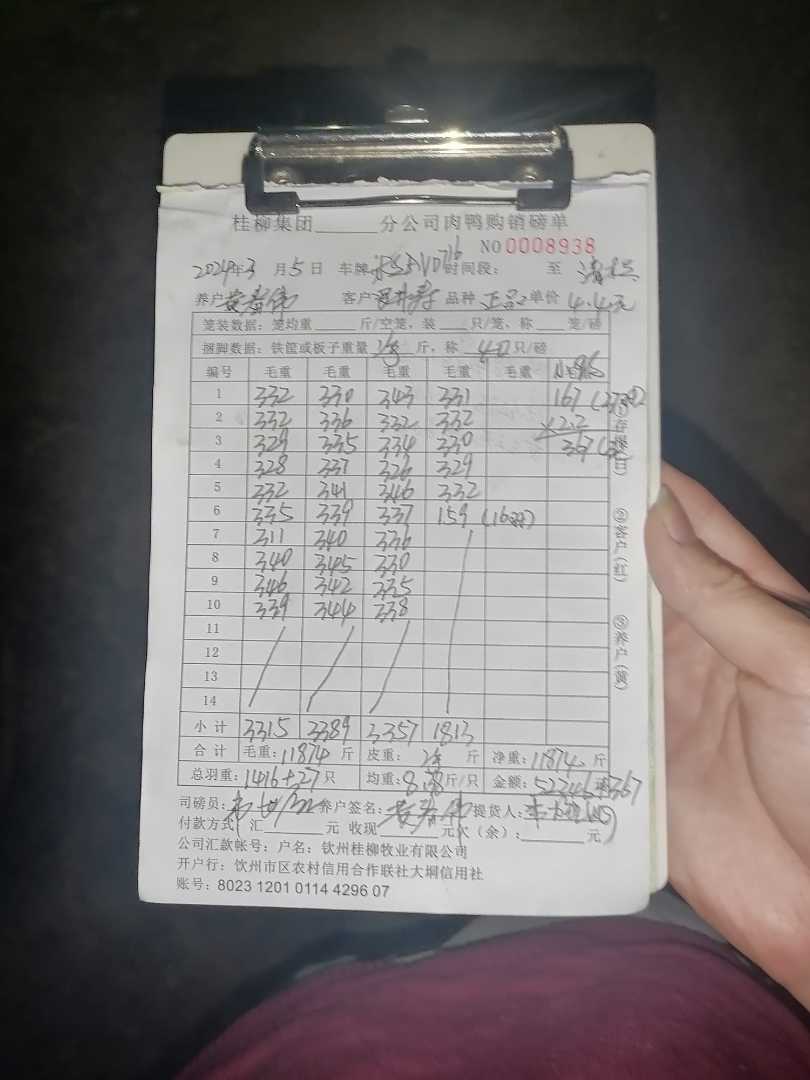 桂柳集团______分公司肉鸭购销磅单
NO 0008938
2024年3月5日 车牌 时间段: 至
养户 客户 品种 正品 单价 4.4元
笼装数据: 笼均重____斤/空笼, 装___只/笼, 称___笼/磅
捆脚数据: 铁筐或板子重量 斤, 称 40只/磅
编号 毛重 毛重 毛重 毛重 毛重 毛重
1 332 330 343 331 167 (27只)
2 332 336 332 332 ×2.2
3 329 335 334 330 367
4 328 337 326 329
5 332 341 346 332
6 335 339 337 159 (16只)
7 311 340 336
8 340 345 330
9 346 342 335
10 339 344 338
11
12
13
14
小计 3315 3389 3357 1813
合计 毛重: 11874斤 皮重: 斤 净重: 11874斤
总羽重: 1416+27只 均重: 8.38斤/只 金额: 52246+367
司磅员: 养户签名: 提货人:
付款方式(汇______元 收现______元欠(余):______元)
公司汇款帐号: 户名: 钦州桂柳牧业有限公司
开户行: 钦州市区农村信用合作联社大垌信用社
账号: 8023 1201 0114 4296 07
①存根(白)
②客户(红)
③养户(黄)